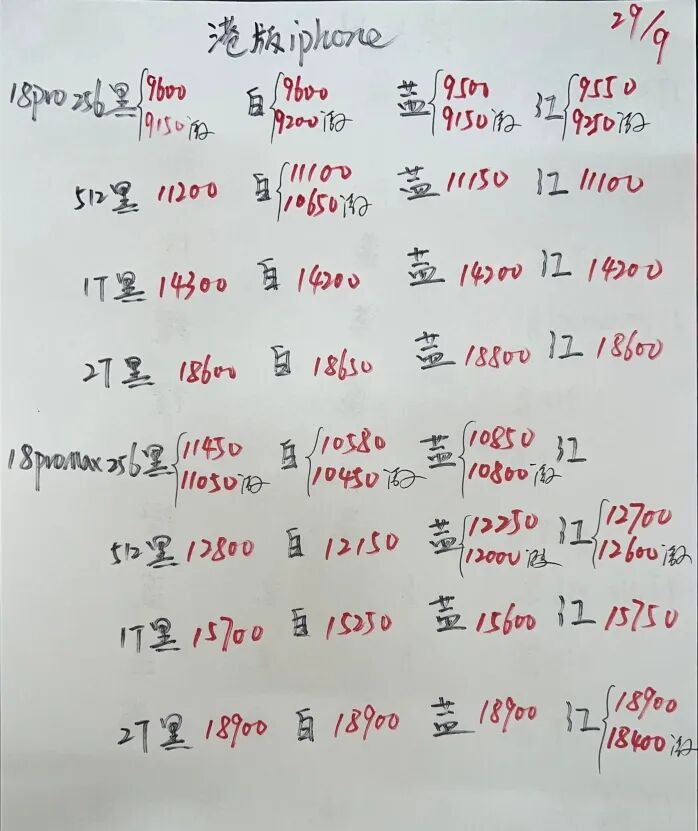 港版iphone 29/9
18pro 256黑{9600 9150激 白{9600 9200激 蓝{9500 9150激 红{9550 9250激
512黑 11200 白{11100 10650激 蓝 11150 红 11100
1T黑 14300 白 14200 蓝 14200 红 14200
2T黑 18600 白 18650 蓝 18800 红 18600
18promax 256黑{11450 11050激 白{10580 10450激 蓝{10850 10800激 红
512黑 12800 白 12150 蓝{12250 12000激 红{12700 12600激
1T黑 15700 白 15250 蓝 15600 红 15750
2T黑 18900 白 18900 蓝 18900 红{18900 18400激